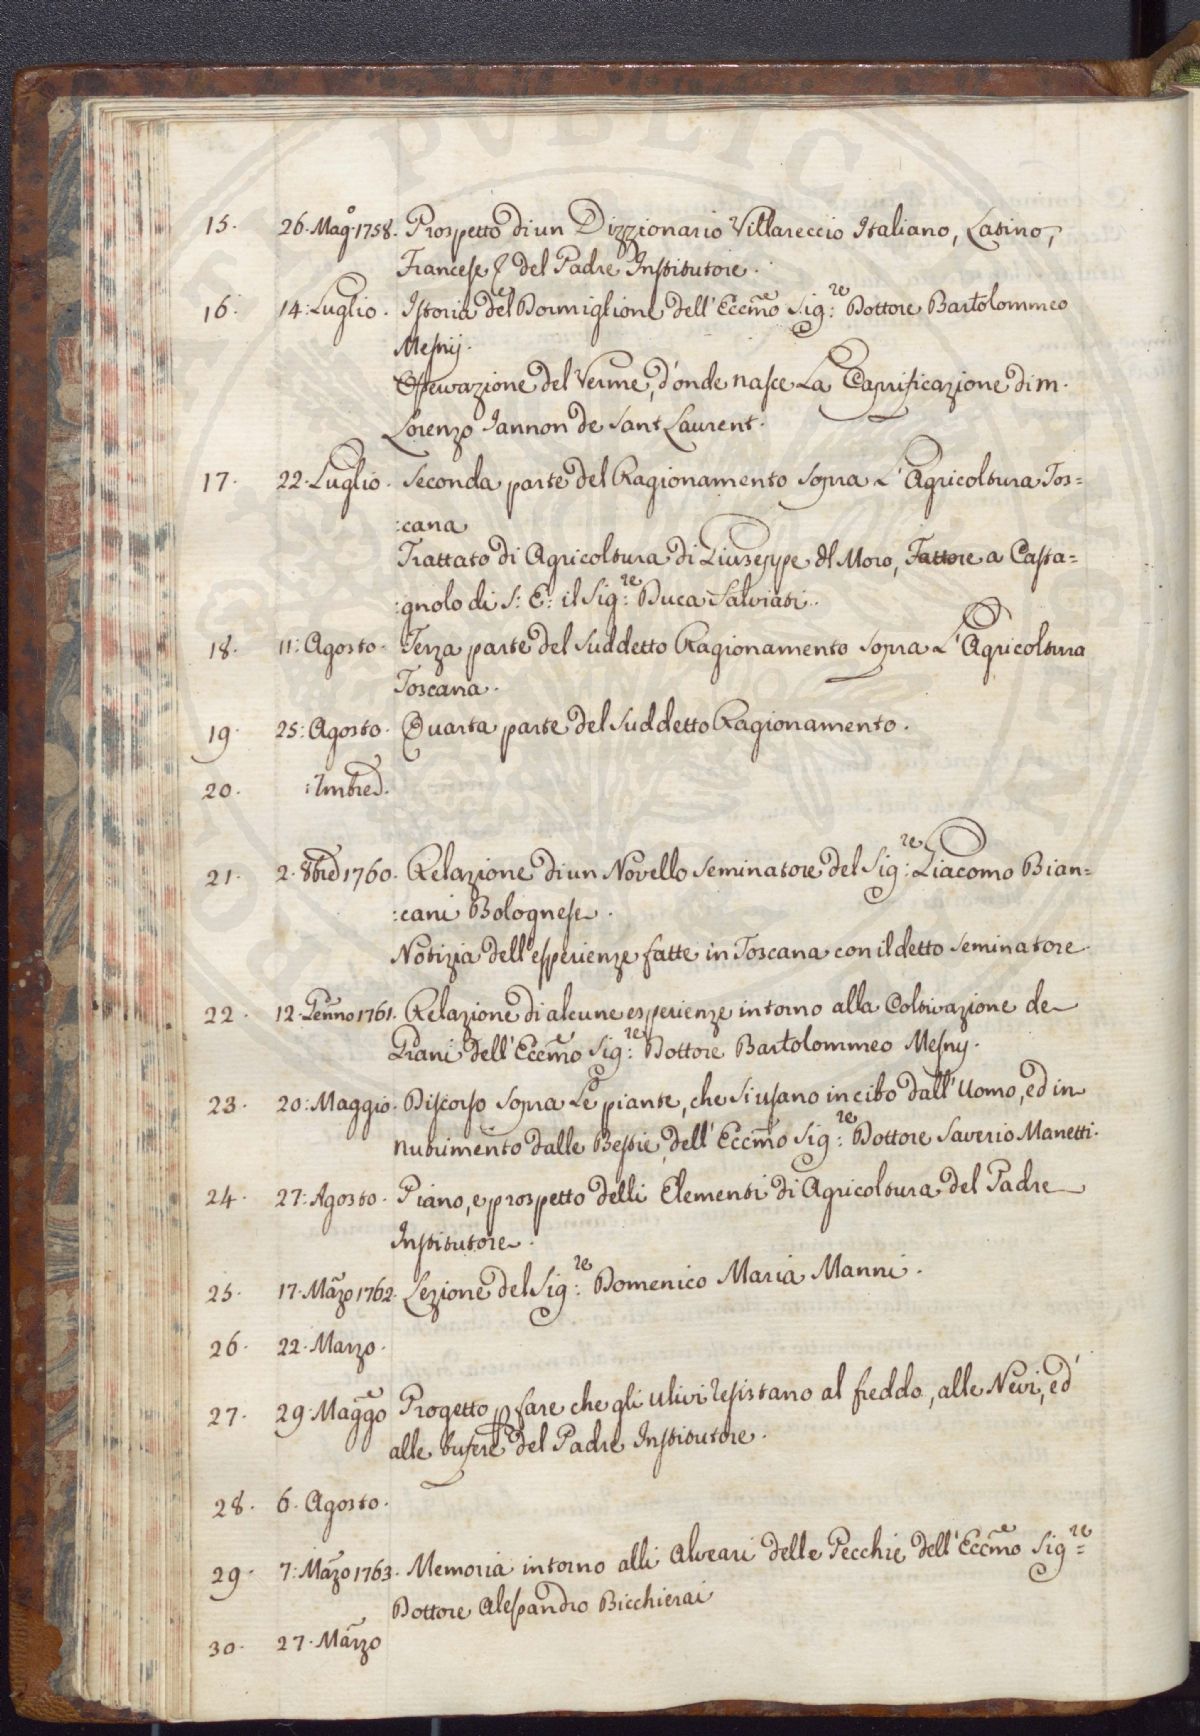 15. 26. Magº. 1758. Prospetto di un Dizzionario Villareccio Italiano, Latino,
Francese & del Padre Institutore.
16. 14: Luglio. Istoria del Dormiglione dell' Eccmo Sig:re Dottore Bartolommeo
Mesnÿ.
Osservazione del Verme, d'onde nasce La Caprificazione di m.
Lorenzo Iannon de Sant Laurent.
17. 22. Luglio. Seconda parte del Ragionamento sopra L'Agricoltura Tos=
:cana
Trattato di Agricoltura di Giuseppe del Moro, Fattore a Casta=
:gnolo di S: E: il Sig:re Duca Salviati.
18. 11: Agosto. Terza parte del Suddetto Ragionamento sopra L'Agricoltura
Toscana.
19. 25: Agosto. Quarta parte del Suddetto Ragionamento.
20.
21. 2. 8bre 1760. Relazione di un Novello Seminatore del Sig:re Giacomo Bian=
:cani Bolognese.
Notizia dell'esperienze fatte in Toscana con il detto Seminatore.
22. 12. Genno 1761. Relazione di alcune esperienze intorno alla Coltivazione de
Grani dell' Eccmo Sig:re Dottore Bartolommeo Mesny.
23. 20: Maggio. Discorso sopra Le piante, che si usano in cibo dall'Uomo, ed in
nutrimento dalle Bestie, dell' Eccmo Sig:re Dottore Saverio Manetti.
24. 27: Agosto. Piano, e prospetto delli Elementi di Agricoltura del Padre
Institutore.
25. 17. Marzo 1762. Lezione del Sig:re Domenico Maria Manni.
26. 22. Marzo.
27. 29. Maggo Progetto p fare che gli Ulivi resistano al freddo, alle Nevi, ed
alle bufere del Padre Institutore.
28. 6. Agosto.
29. 7: Marzo 1763. Memoria intorno alli Alveari delle Pecchie dell' Eccmo Sig:re
Dottore Alessandro Bicchierai
30. 27. Marzo